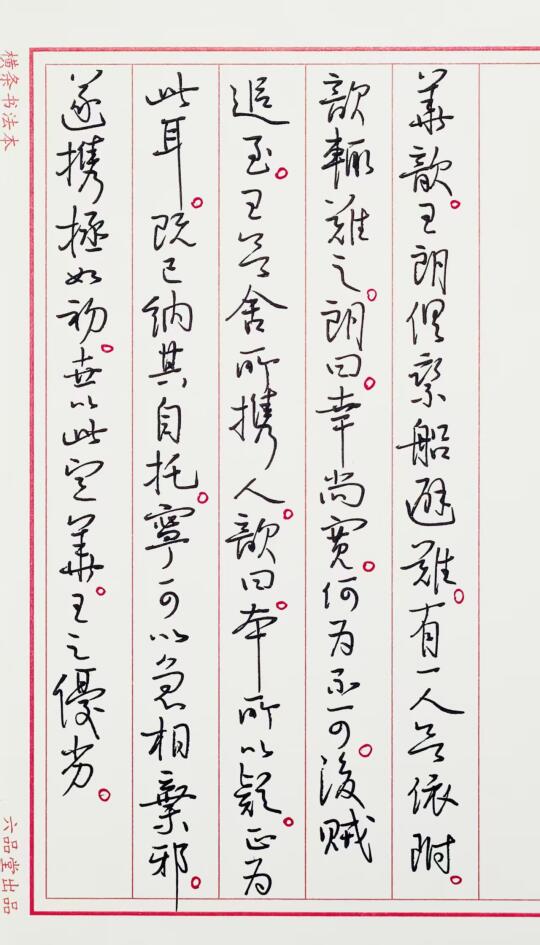 華歆。王朗俱乘船避難。有一人欲依附。
歆輒難之。朗曰。幸尚寬。何为不可。後賊
追至。王欲舍所携人。歆曰。本所以疑。正为
此耳。既已納其自托。寧可以急相棄邪。
遂携拯如初。世以此定華。王之優劣。
横条书法本
六品堂出品